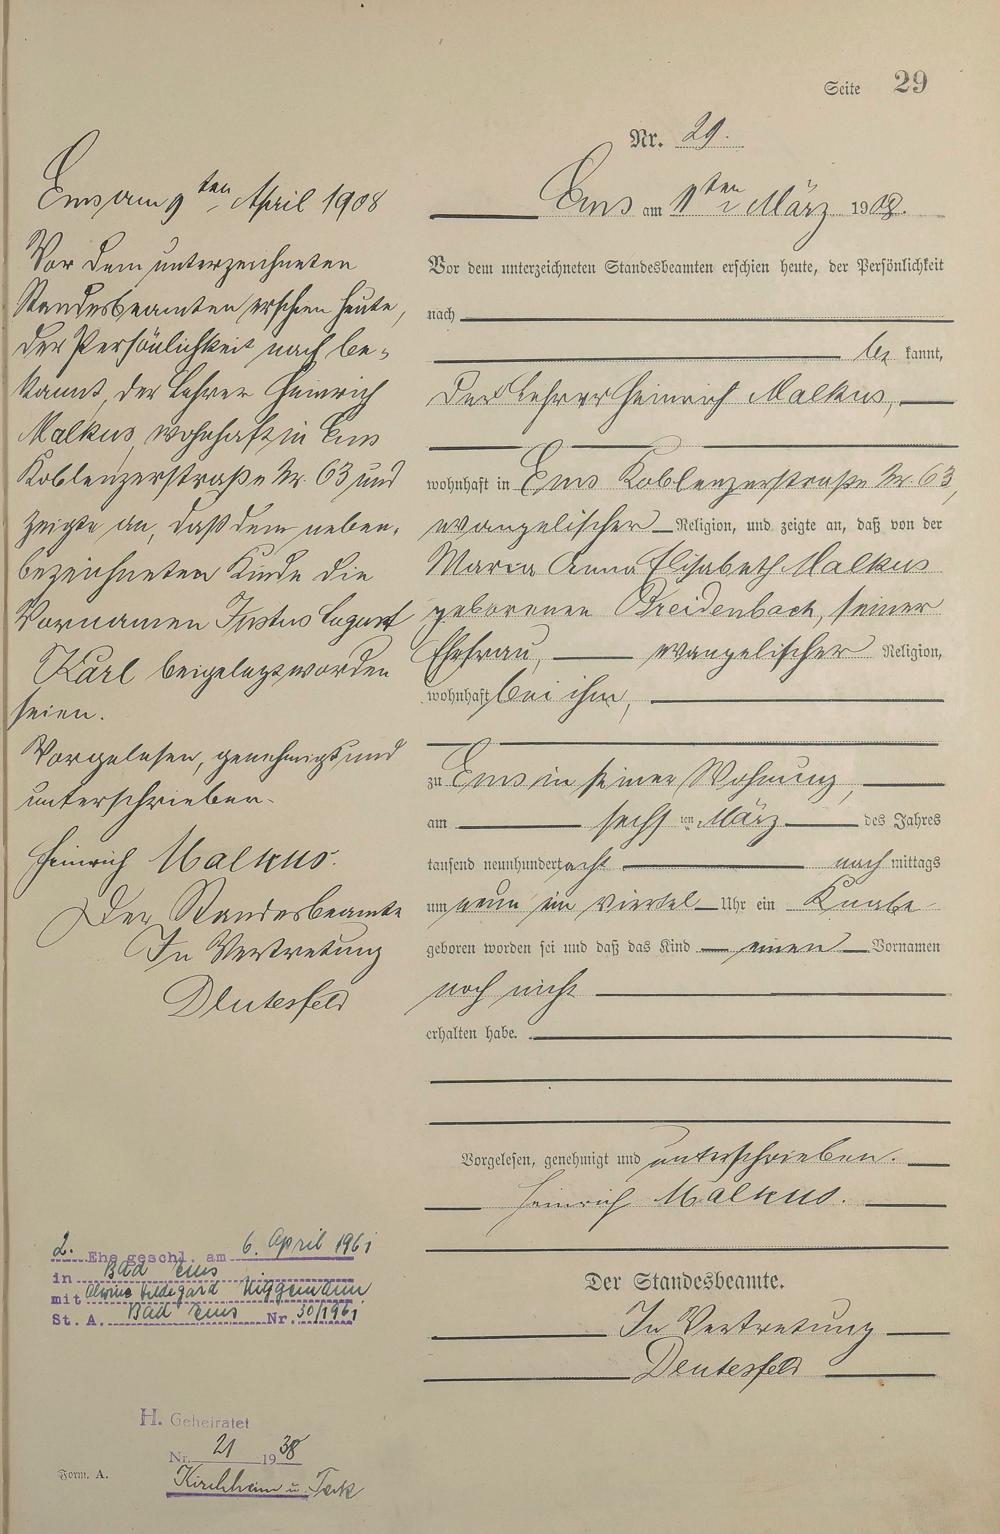 Seite 29
Nr. 29.
Ems am 9ten März 1908.
Vor dem unterzeichneten Standesbeamten erschien heute, der Persönlichkeit
nach
be kannt,
der Lehrer Heinrich Malkus,
wohnhaft in Ems Koblenzerstraße Nr. 63,
evangelischer Religion, und zeigte an, daß von der
Maria Anna Elisabeth Malkus
geborenen Breidenbach, seiner
Ehefrau, evangelischer Religion,
wohnhaft bei ihm,
zu Ems in seiner Wohnung,
am sechs ten März des Jahres
tausend neunhundert acht nach mittags
um neun ein viertel Uhr ein Knabe
geboren worden sei und daß das Kind einen Vornamen
noch nicht
erhalten habe.
Vorgelesen, genehmigt und unterschrieben.
Heinrich Malkus.
Der Standesbeamte.
In Vertretung
Deutesfeld
Ems am 9ten April 1908
Vor dem unterzeichneten
Standesbeamten erschien heute,
der Persönlichkeit nach be-
kannt, der Lehrer Heinrich
Malkus, wohnhaft in Ems
Koblenzerstraße Nr. 63 und
zeigte an, daß dem neben-
bezeichneten Kinde die
Vornamen Justus August
Karl beigelegt worden
seien.
Vorgelesen, genehmigt und
unterschrieben.
Heinrich Malkus.
Der Standesbeamte
In Vertretung
Deutesfeld
2. Ehe geschl. am 6. April 1961
in Bad Ems
mit Hildegard
St. A. Bad Ems Nr. 30/1961
H. Geheiratet
Nr. 21 1938
Kirchheim u. Teck
Form. A.